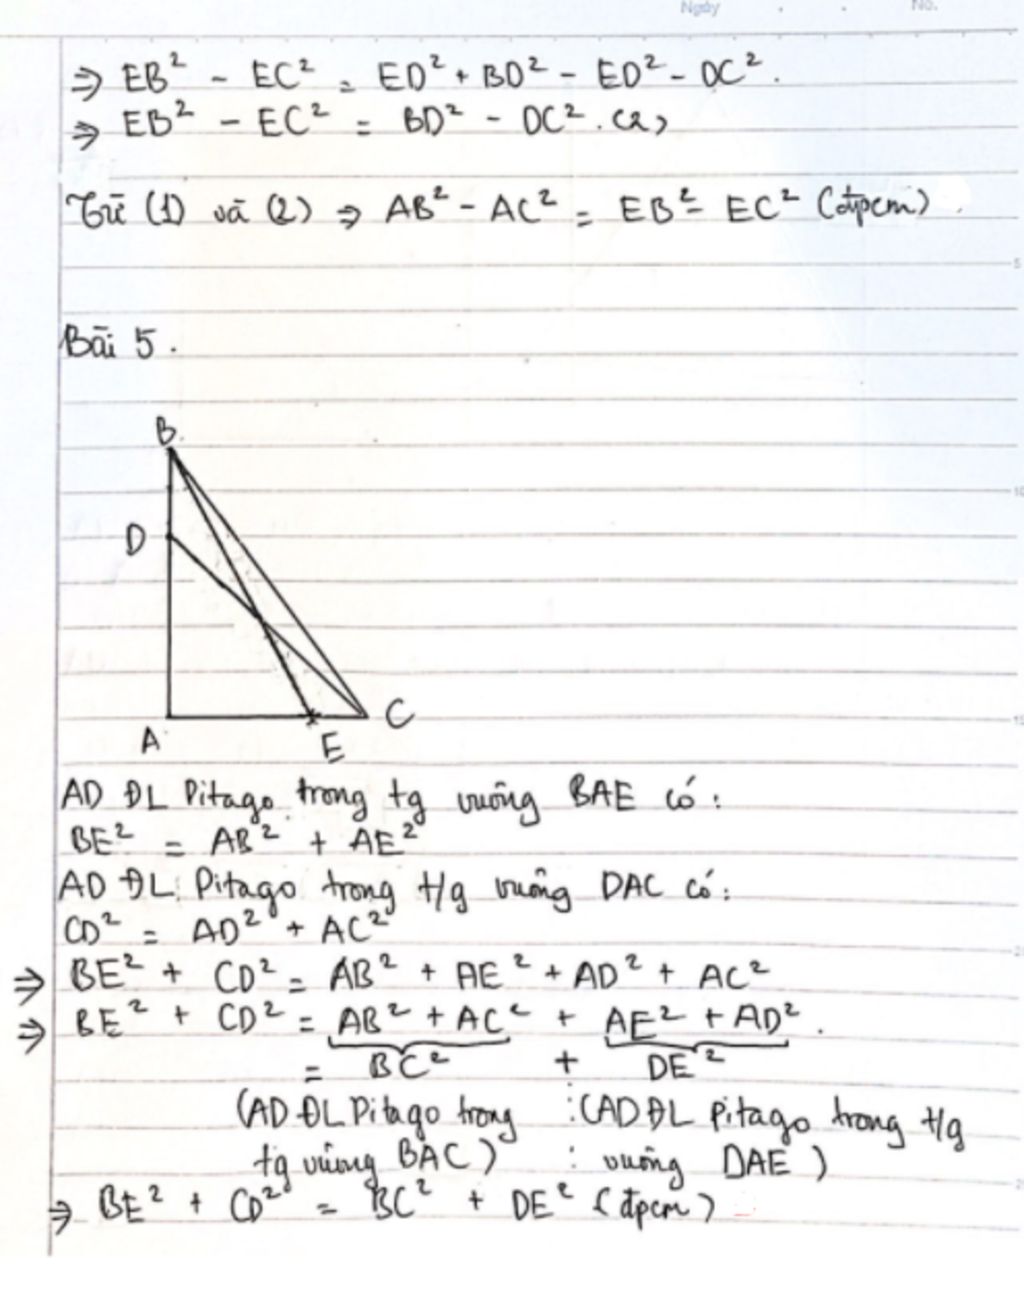 Ngày No.
⇒ EB² - EC² = ED² + BD² - ED² - DC².
⇒ EB² - EC² = BD² - DC². (2)
Từ (1) và (2) ⇒ AB² - AC² = EB² - EC² (đpcm).
5
Bài 5.
B
10
D
15
A E C
AD ĐL Pitago trong tg vuông BAE có:
BE² = AB² + AE²
AD ĐL Pitago trong t/g vuông DAC có:
CD² = AD² + AC²
⇒ BE² + CD² = AB² + AE² + AD² + AC²
⇒ BE² + CD² = AB² + AC² + AE² + AD².
= BC² + DE²
(AD ĐL Pitago trong : (AD ĐL pitago trong t/g
tg vuông BAC) : vuông DAE)
⇒ BE² + CD² = BC² + DE² (đpcm)